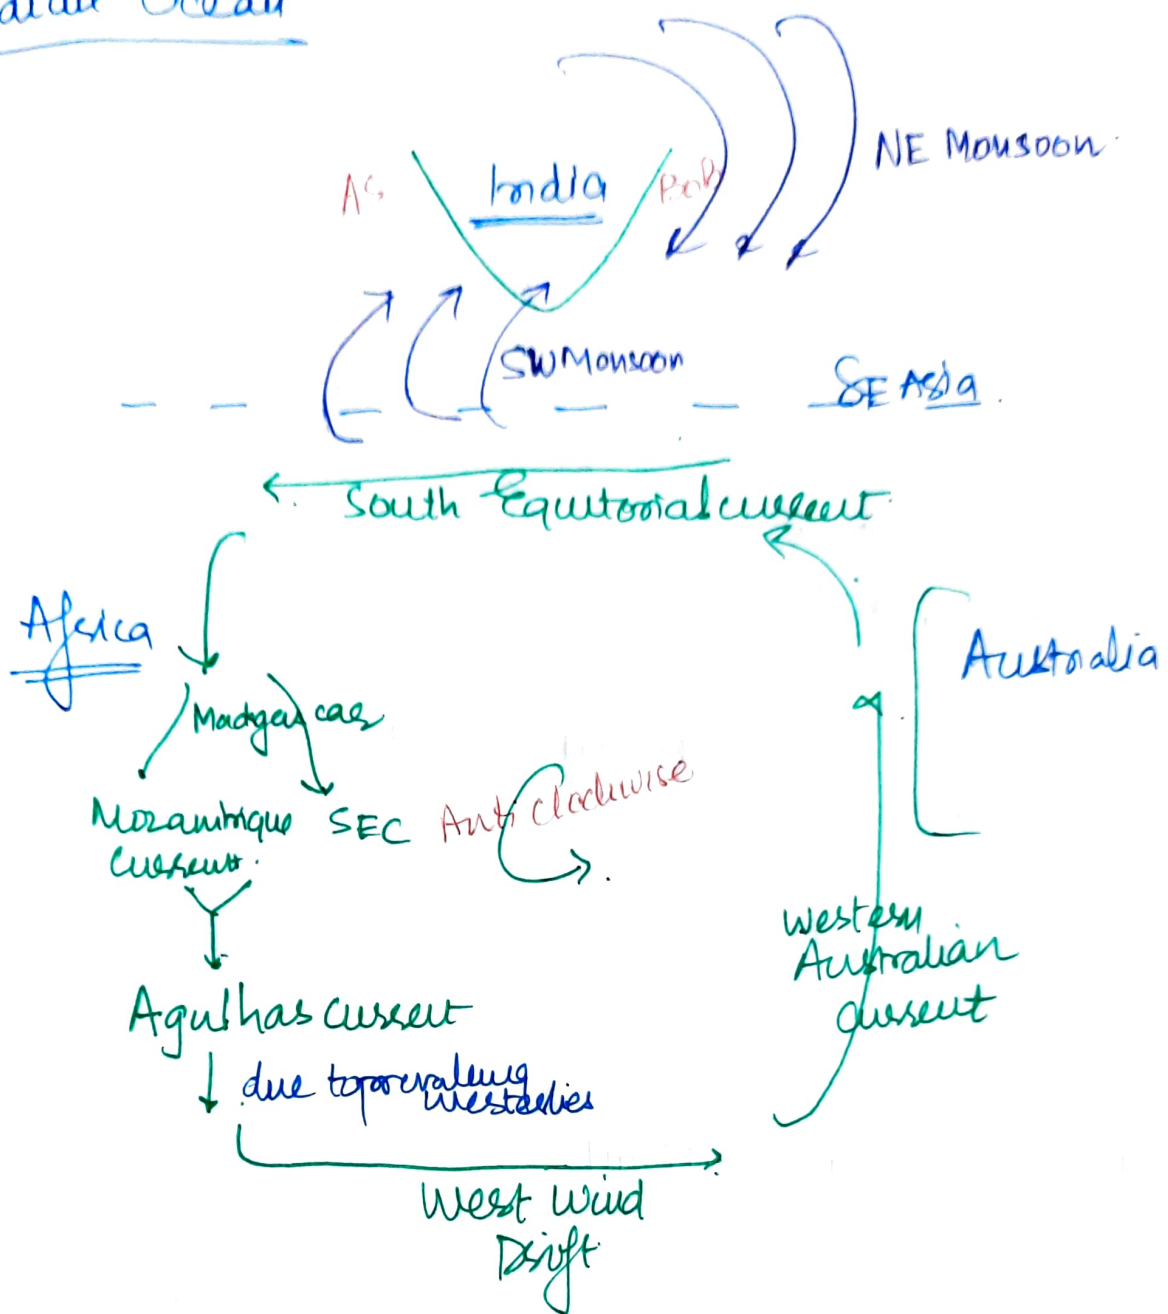 Ocean
NE Monsoon
AS
India
BoB
SW Monsoon
SE Asia
South Equitorial current
Africa
Australia
Madgascar
Anti clockwise
Mozambique
current
SEC
Western
Australian
current
Agulhas current
due to prevaleing
westerlies
West Wind
Drift